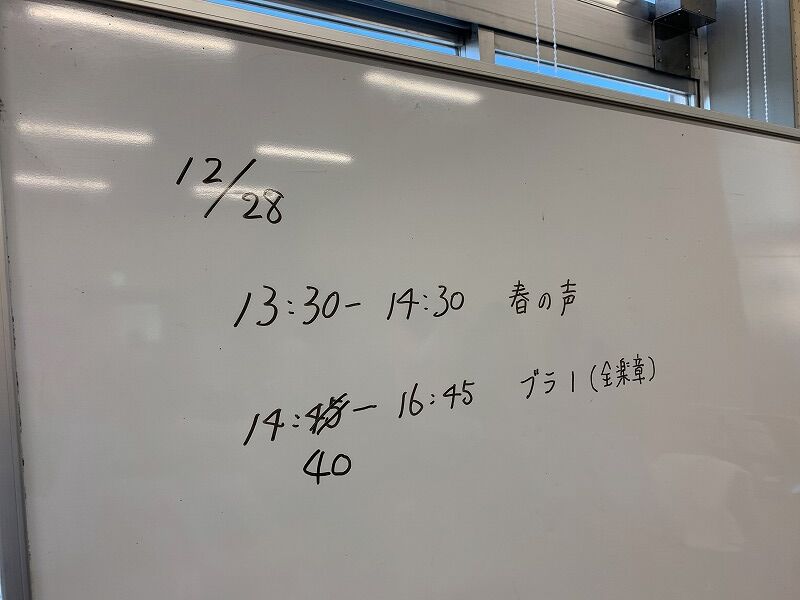 12/28
13:30- 14:30 春の声
14:45- 16:45 ブラ1(全楽章)
40